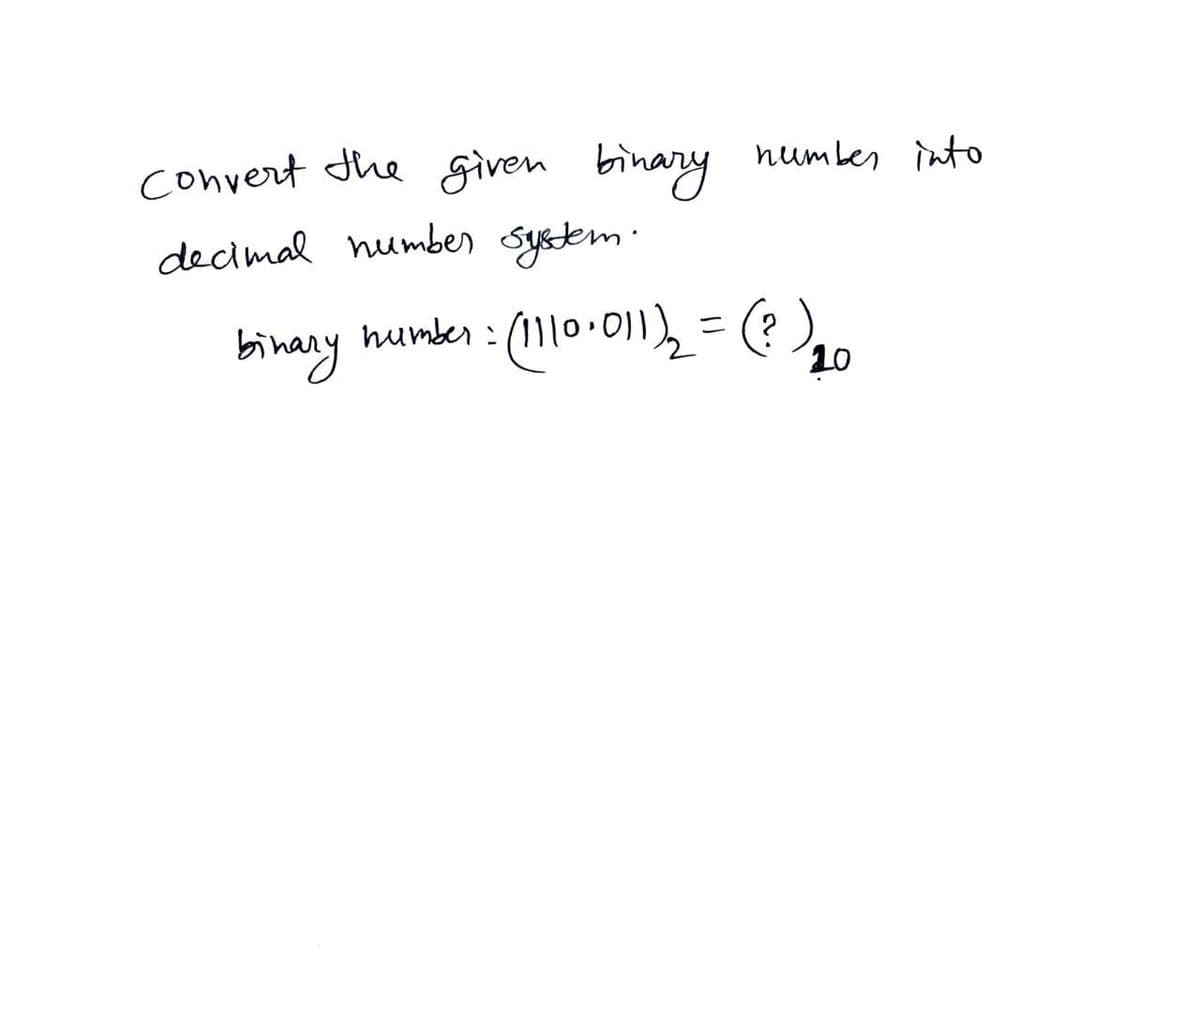 Convert the given binary number into
decimal number system.
binary number : (1110.011)₂ = (?)₁₀